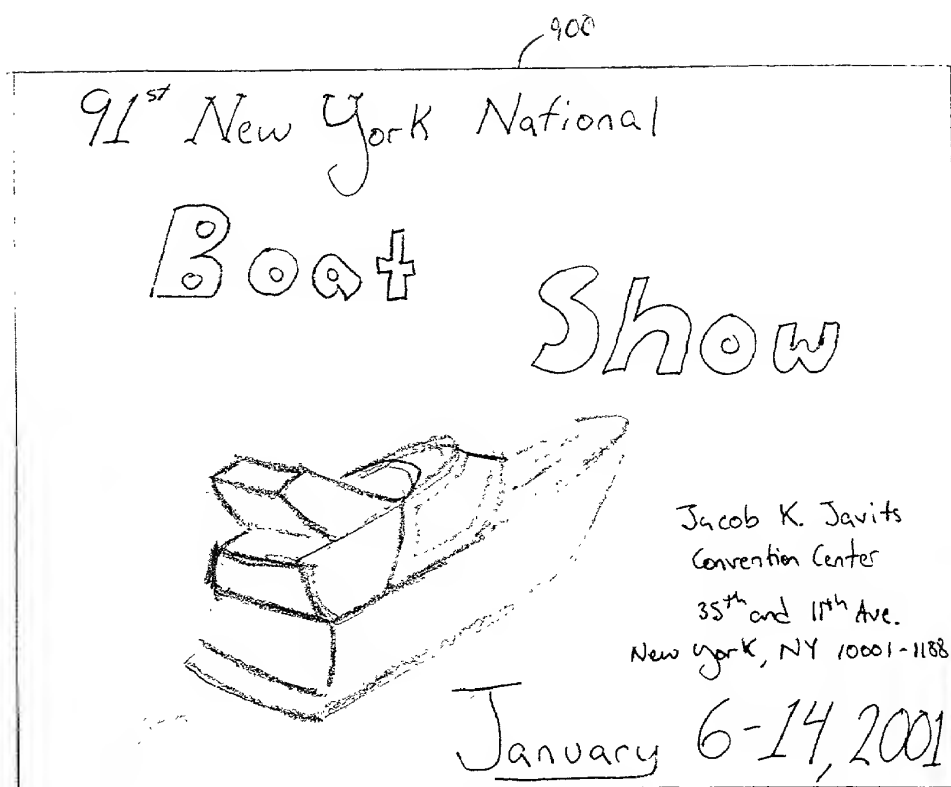 900
91st New York National
Boat
Show
Jacob K. Javits
Convention Center
35th and 11th Ave.
New York, NY 10001-1188
January 6-14, 2001